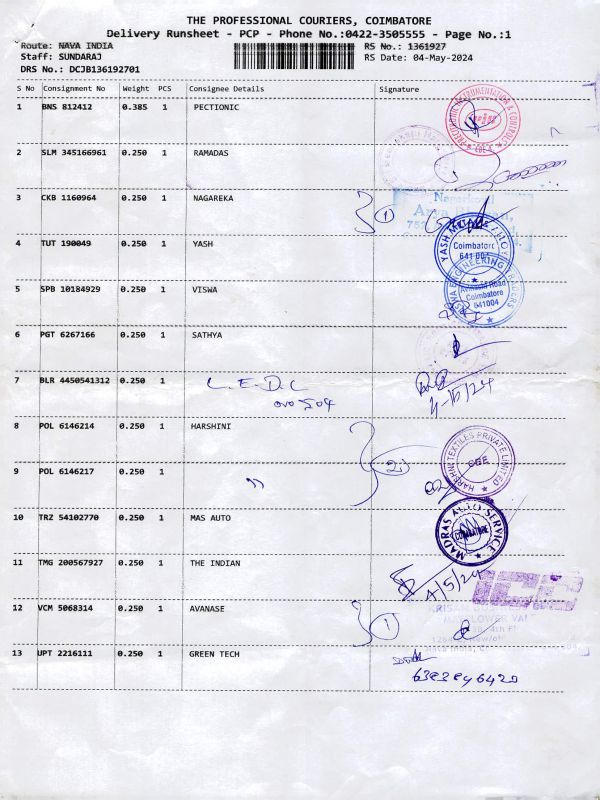 THE PROFESSIONAL COURIERS, COIMBATORE
Delivery Runsheet - PCP - Phone No.:0422-3505555 - Page No.:1
Route: NAVA INDIA RS No.: 1361927
Staff: SUNDARAJ RS Date: 04-May-2024
DRS No.: DCJB136192701
S No Consignment No Weight PCS Consignee Details Signature
1 BNS 812412 0.385 1 PECTIONIC
2 SLM 345166961 0.250 1 RAMADAS
3 CKB 1160964 0.250 1 NAGAREKA 1
4 TUT 190049 0.250 1 YASH
Coimbatore
5 SPB 10184929 0.250 1 VISWA
Avinashi Road
Coimbatore
641004
6 PGT 6267166 0.250 1 SATHYA
7 BLR 4450541312 0.250 1 L.E.D.C
8 POL 6146214 0.250 1 HARSHINI 2
HARSHINI TEXTILES PRIVATE LIMITED
CBE
9 POL 6146217 0.250 1 "
10 TRZ 54102770 0.250 1 MAS AUTO
MADRAS AUTO SERVICE
COIMBATORE
11 TMG 200567927 0.250 1 THE INDIAN
4/5/24
12 VCM 5068314 0.250 1 AVANASE 1
13 UPT 2216111 0.250 1 GREEN TECH